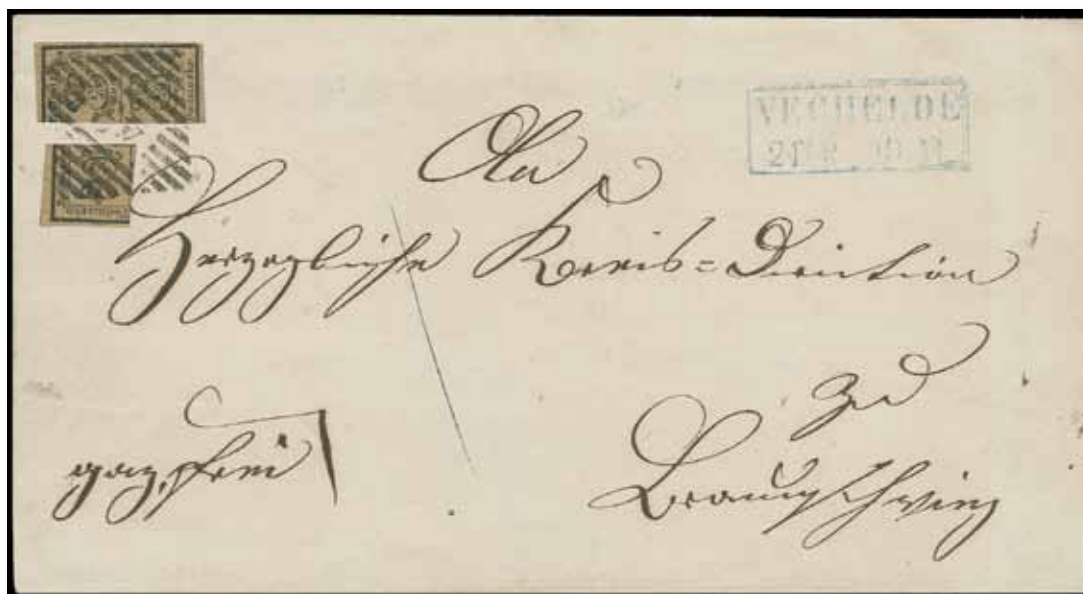 VECHELDE
An
Herzogliche Kreis=Direction
zu
Braunschweig
ganz frei